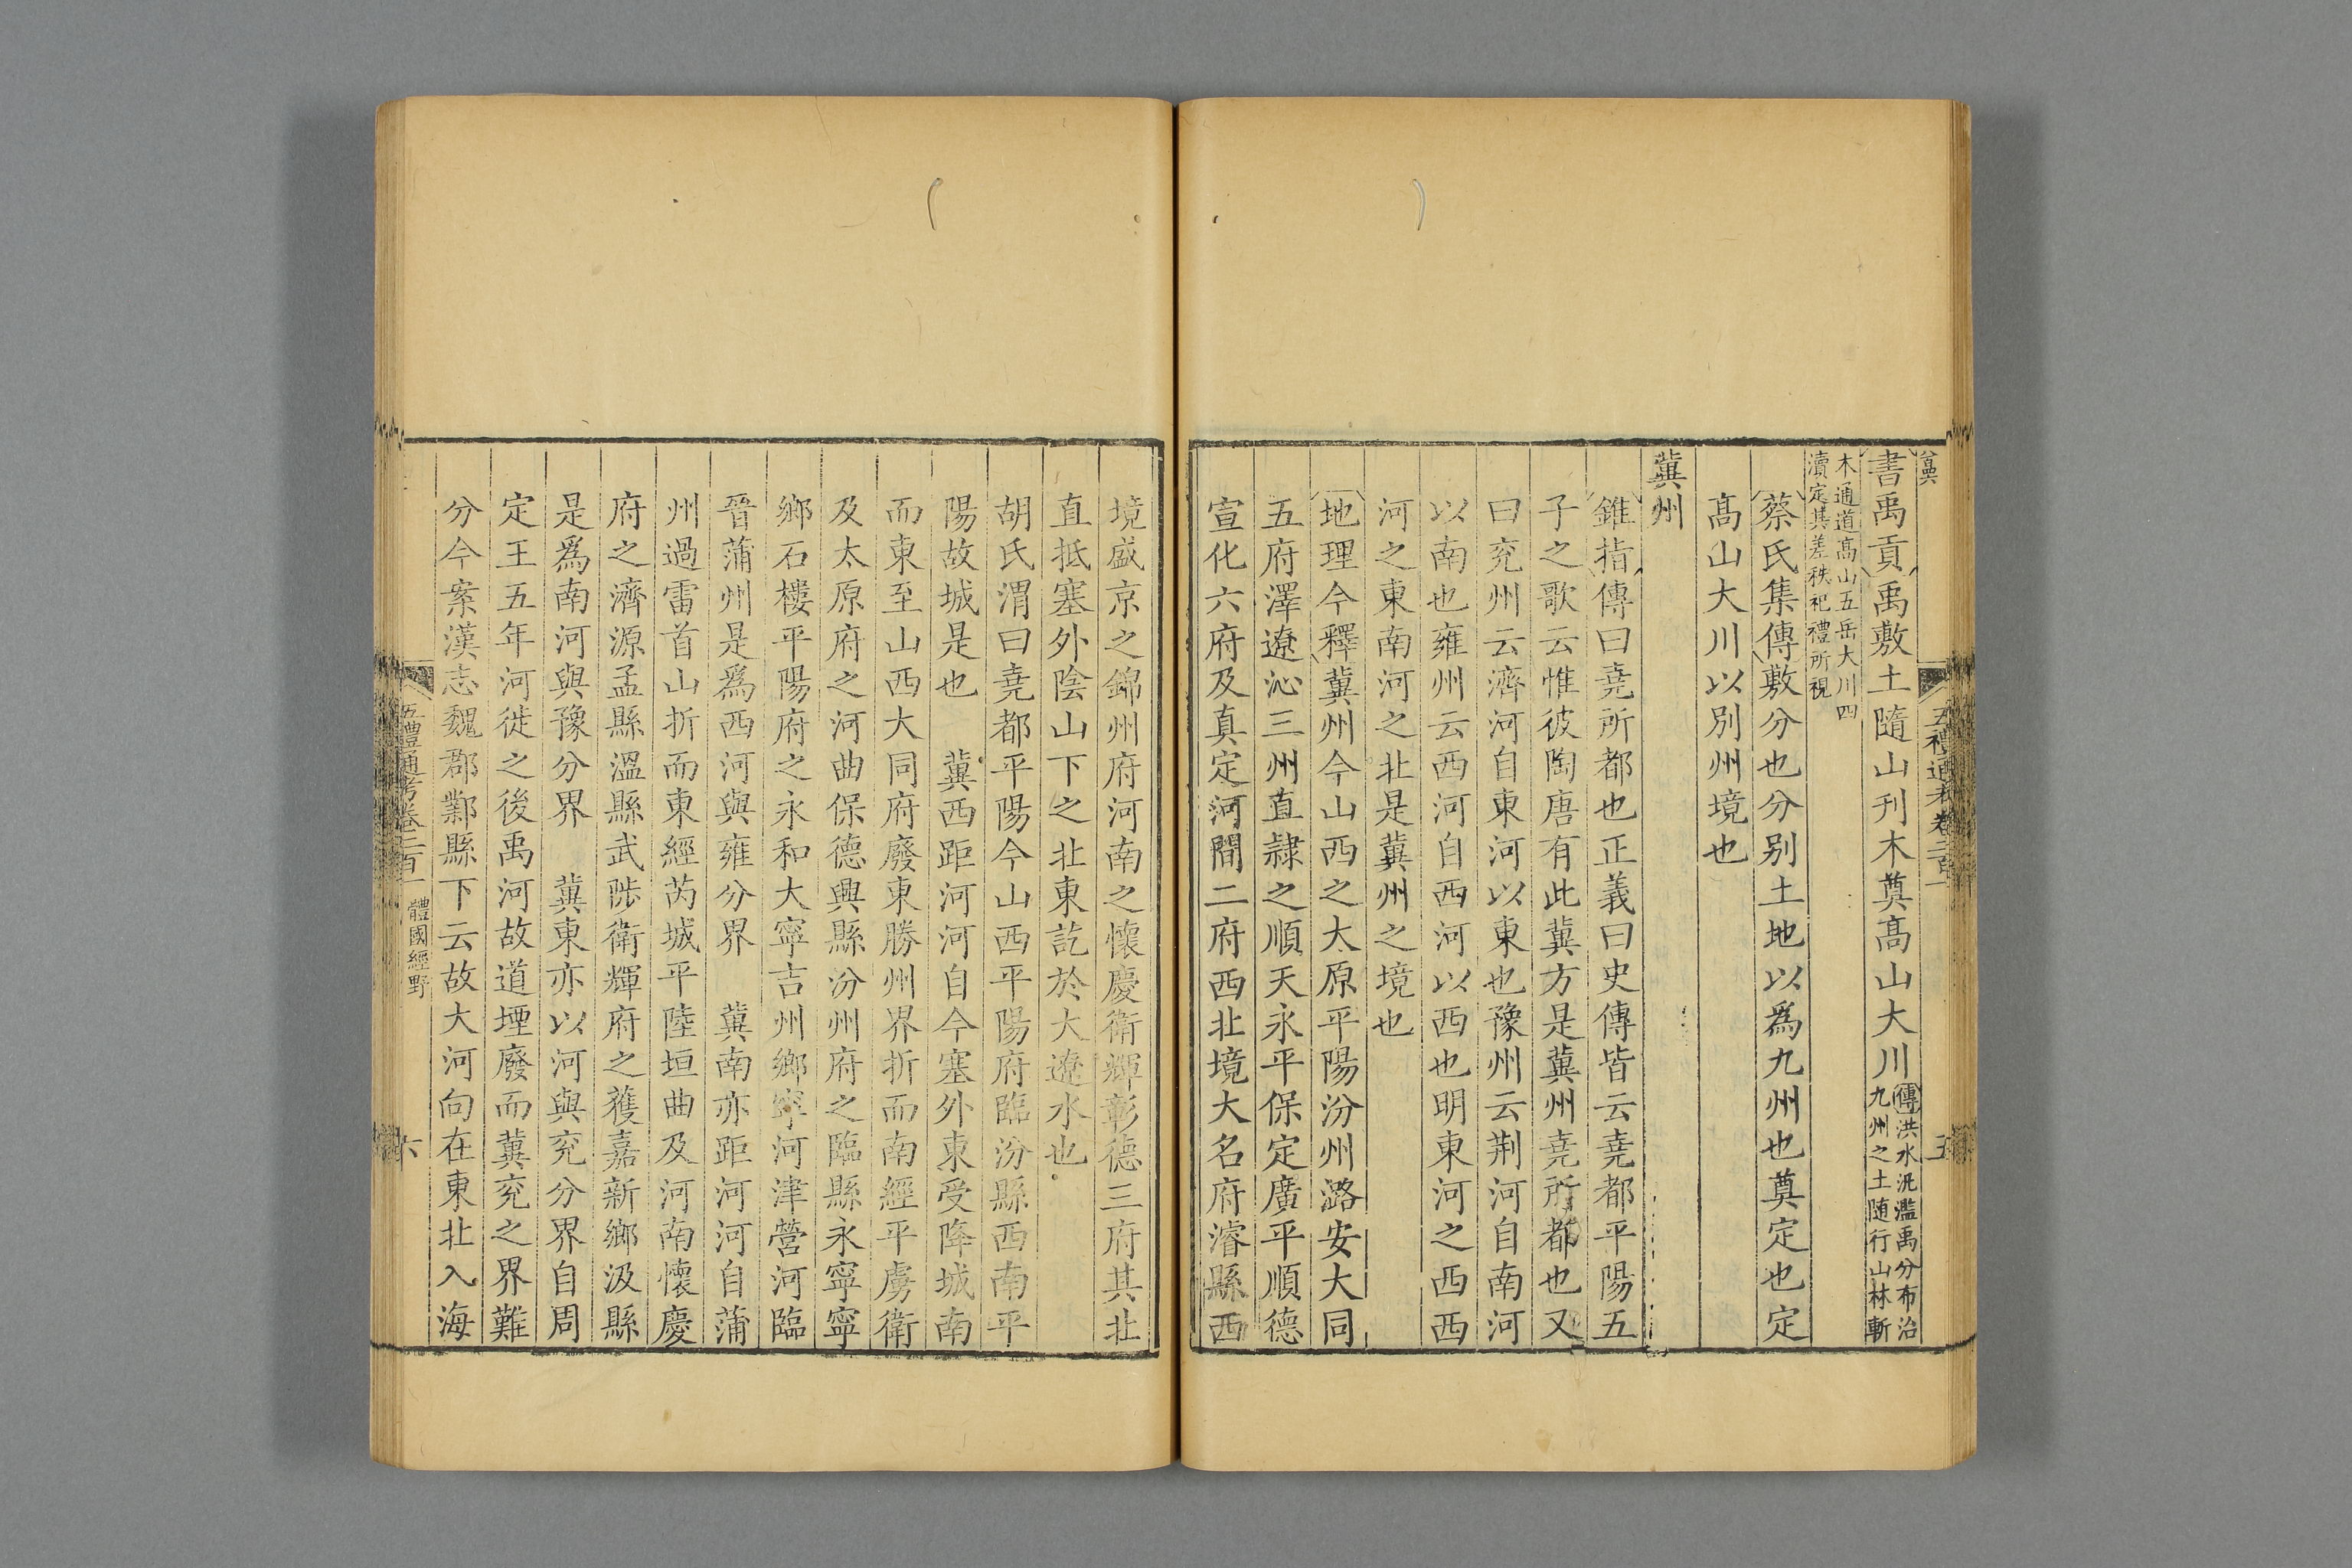 五禮通考卷二百一
五
書禹貢禹敷土隨山刋木奠髙山大川
傳洪水汎濫禹分布治
九州之土随行山林斬
木通道髙山五岳大川四
瀆定其差秩祀禮所視
蔡氏集傳敷分也分别土地以爲九州也奠定也定
髙山大川以別州境也
冀州
錐指傳曰堯所都也正義曰史傳皆云堯都平陽五
子之歌云惟彼陶唐有此冀方是冀州堯所都也又
曰兖州云濟河自東河以東也豫州云荆河自南河
以南也雍州云西河自西河以西也明東河之西西
河之東南河之北是冀州之境也
地理今釋冀州今山西之太原平陽汾州潞安大同
五府澤遼沁三州直隷之順天永平保定廣平順德
宣化六府及真定河間二府西北境大名府濬縣西
境盛京之錦州府河南之懷慶衛輝彰德三府其北
直抵塞外陰山下之北東訖於大遼水也
胡氏渭曰堯都平陽今山西平陽府臨汾縣西南平
陽故城是也　冀西距河河自今塞外東受降城南
而東至山西大同府廢東勝州界折而南經平虜衛
及太原府之河曲保德興縣汾州府之臨縣永寧寧
鄉石樓平陽府之永和大寧吉州鄉寧河津營河臨
晉蒲州是爲西河與雍分界　冀南亦距河河自蒲
州過雷首山折而東經芮城平陸垣曲及河南懷慶
府之濟源孟縣溫縣武陟衛輝府之獲嘉新鄉汲縣
是爲南河與豫分界　冀東亦以河與兖分界自周
定王五年河徙之後禹河故道堙廢而冀兖之界難
分今案漢志魏郡鄴縣下云故大河向在東北入海
五禮通考卷二百一
體國經野
六